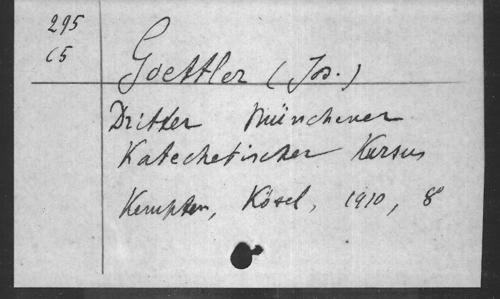 295
C5
Goettler (Jos.)
Dritter Münchener
Katechetischer Kursus
Kempten, Kösel, 1910, 8°